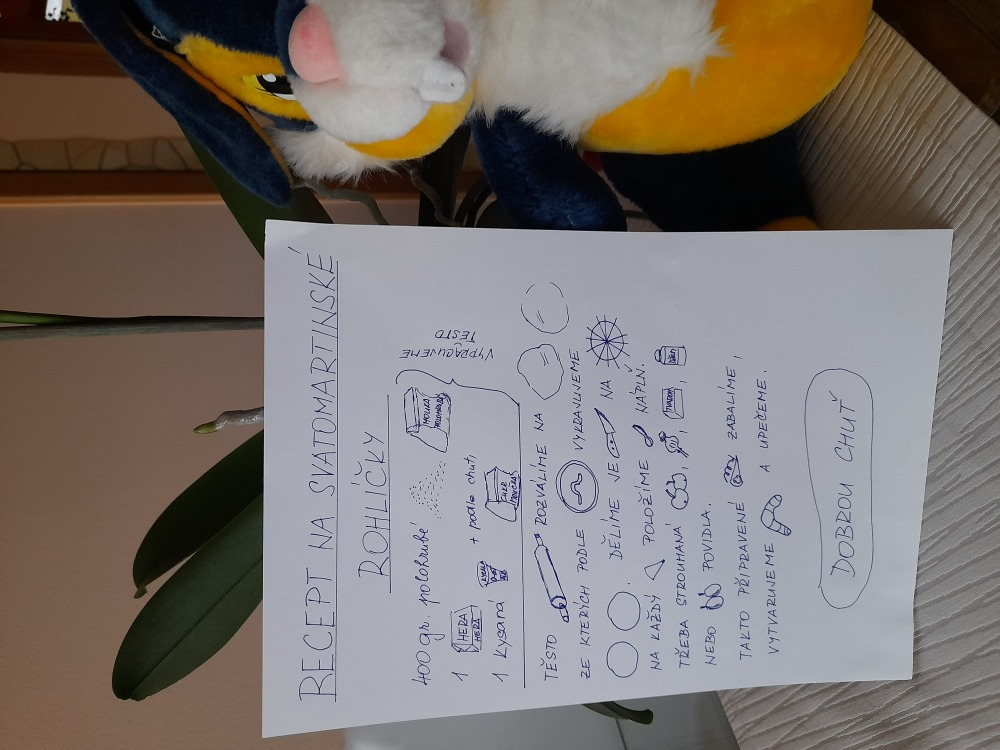 RECEPT NA SVATOMARTINSKÉ
ROHLÍČKY
400 gr. polohrubé
MOUKA
POLOHRUBÁ
1 HERA
HERA
1 Kysaná + podle chuti
CUKR
MOUČKA
VYPRACUJEME
TĚSTO
TĚSTO ROZVÁLÍME NA
ZE KTERÝCH PODLE VYKRAJUJEME
. DĚLÍME JE NA
NA KAŽDÝ POLOŽÍME NÁPLŇ.
TŘEBA STROUHANÁ , , TVAROH ,
NEBO POVIDLA.
TAKTO PŘIPRAVENÉ ZABALÍME,
VYTVARUJEME A UPEČEME.
DOBROU CHUŤ